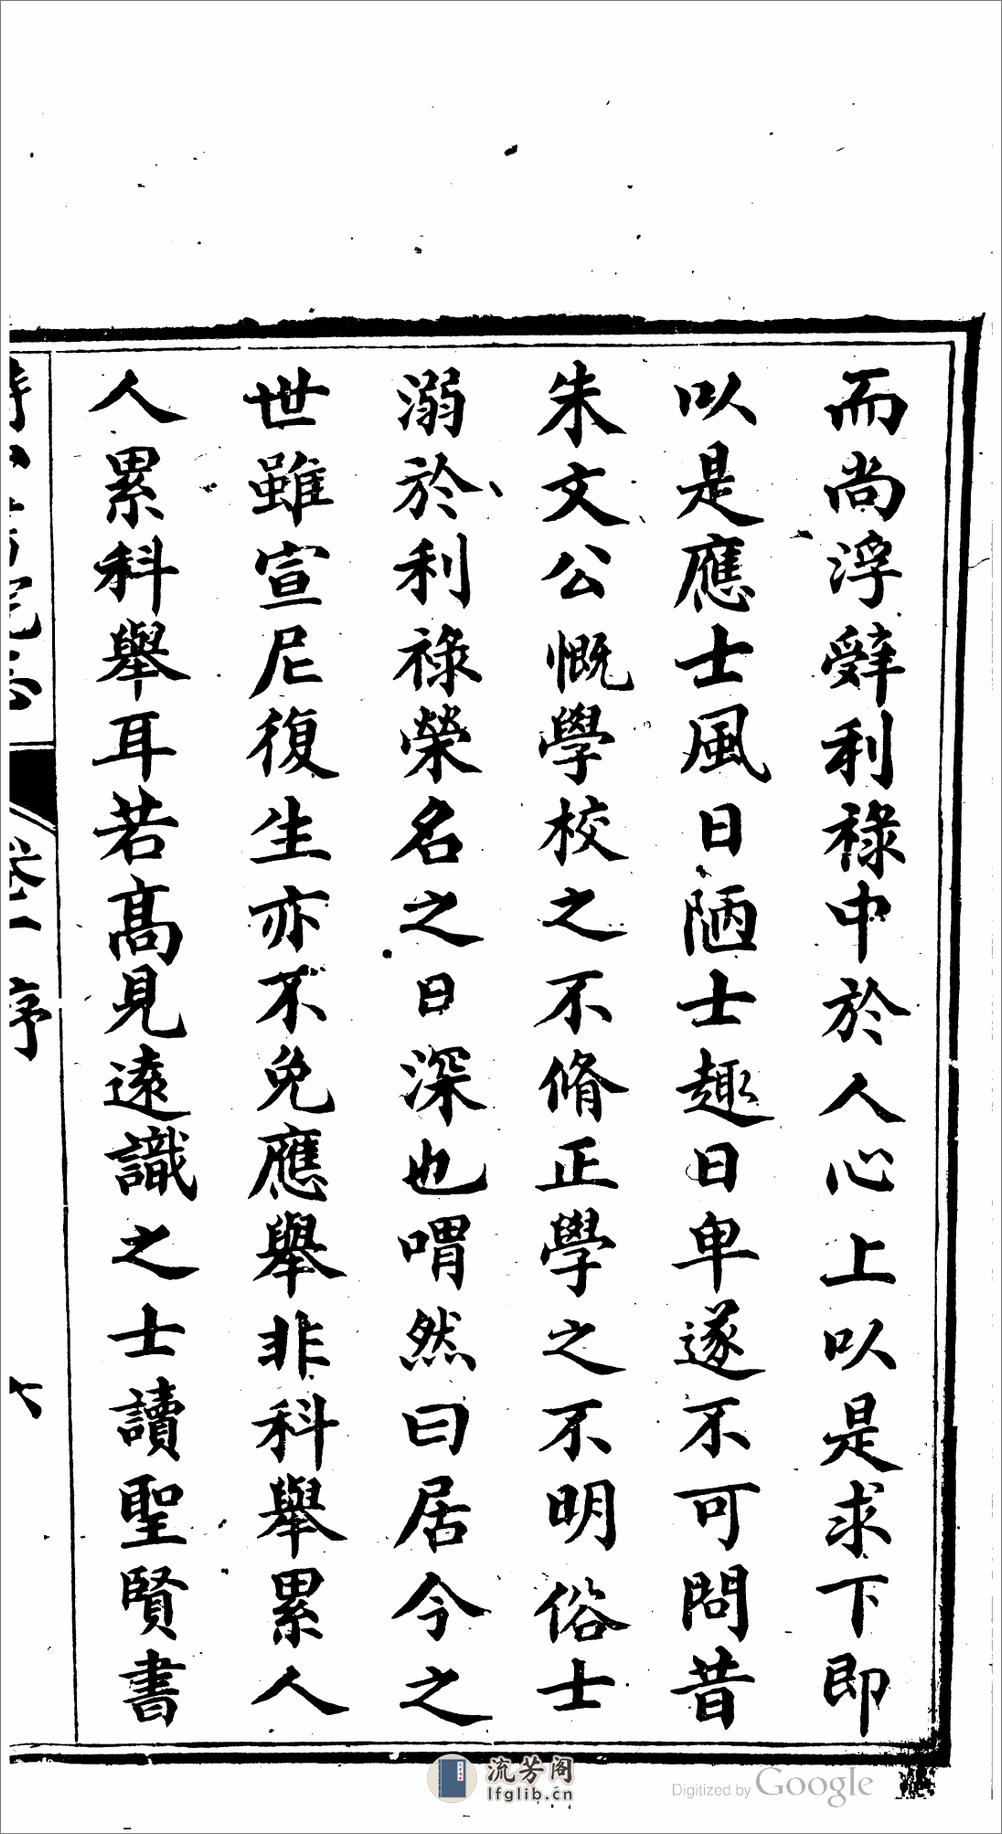 而尚浮辭利祿中於人心上以是求下即
以是應士風日陋士趣日卑遂不可問昔
朱文公慨學校之不脩正學之不明俗士
溺於利祿榮名之日深也喟然曰居今之
世雖宣尼復生亦不免應舉非科舉累人
人累科舉耳若高見遠識之士讀聖賢書
卷一 序
六
流芳阁
lfglib.cn
Digitized by Google